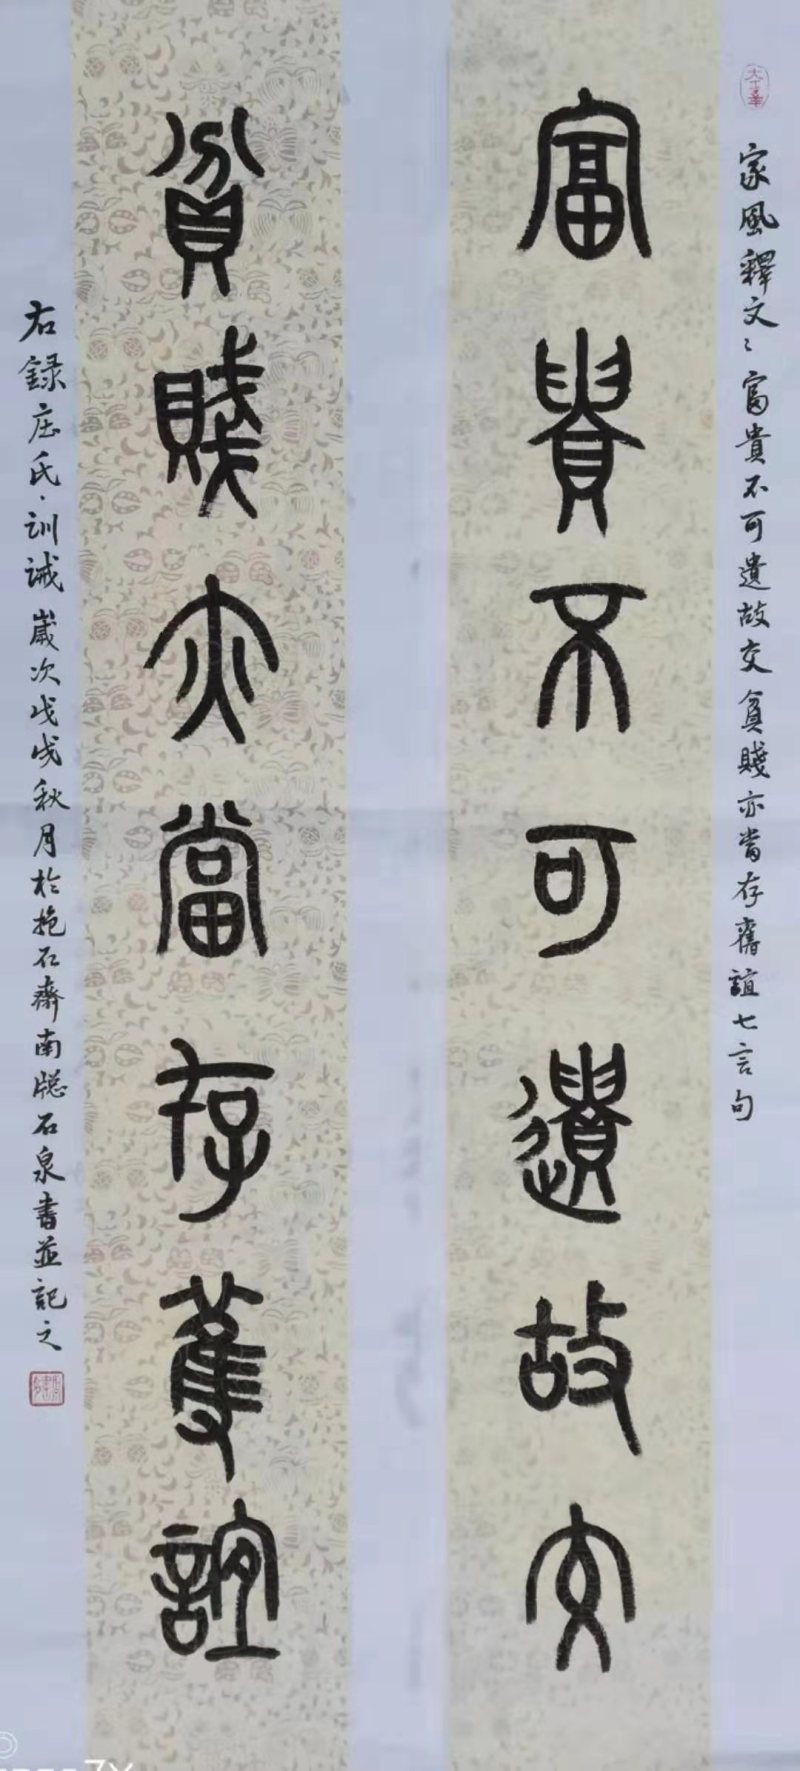 家風釋文：富貴不可遺故交貧賤亦當存舊誼七言句
富貴不可遺故交
貧賤亦當存舊誼
右錄庄氏訓誡歲次戊戌秋月於抱石齋南牕石泉書並記之